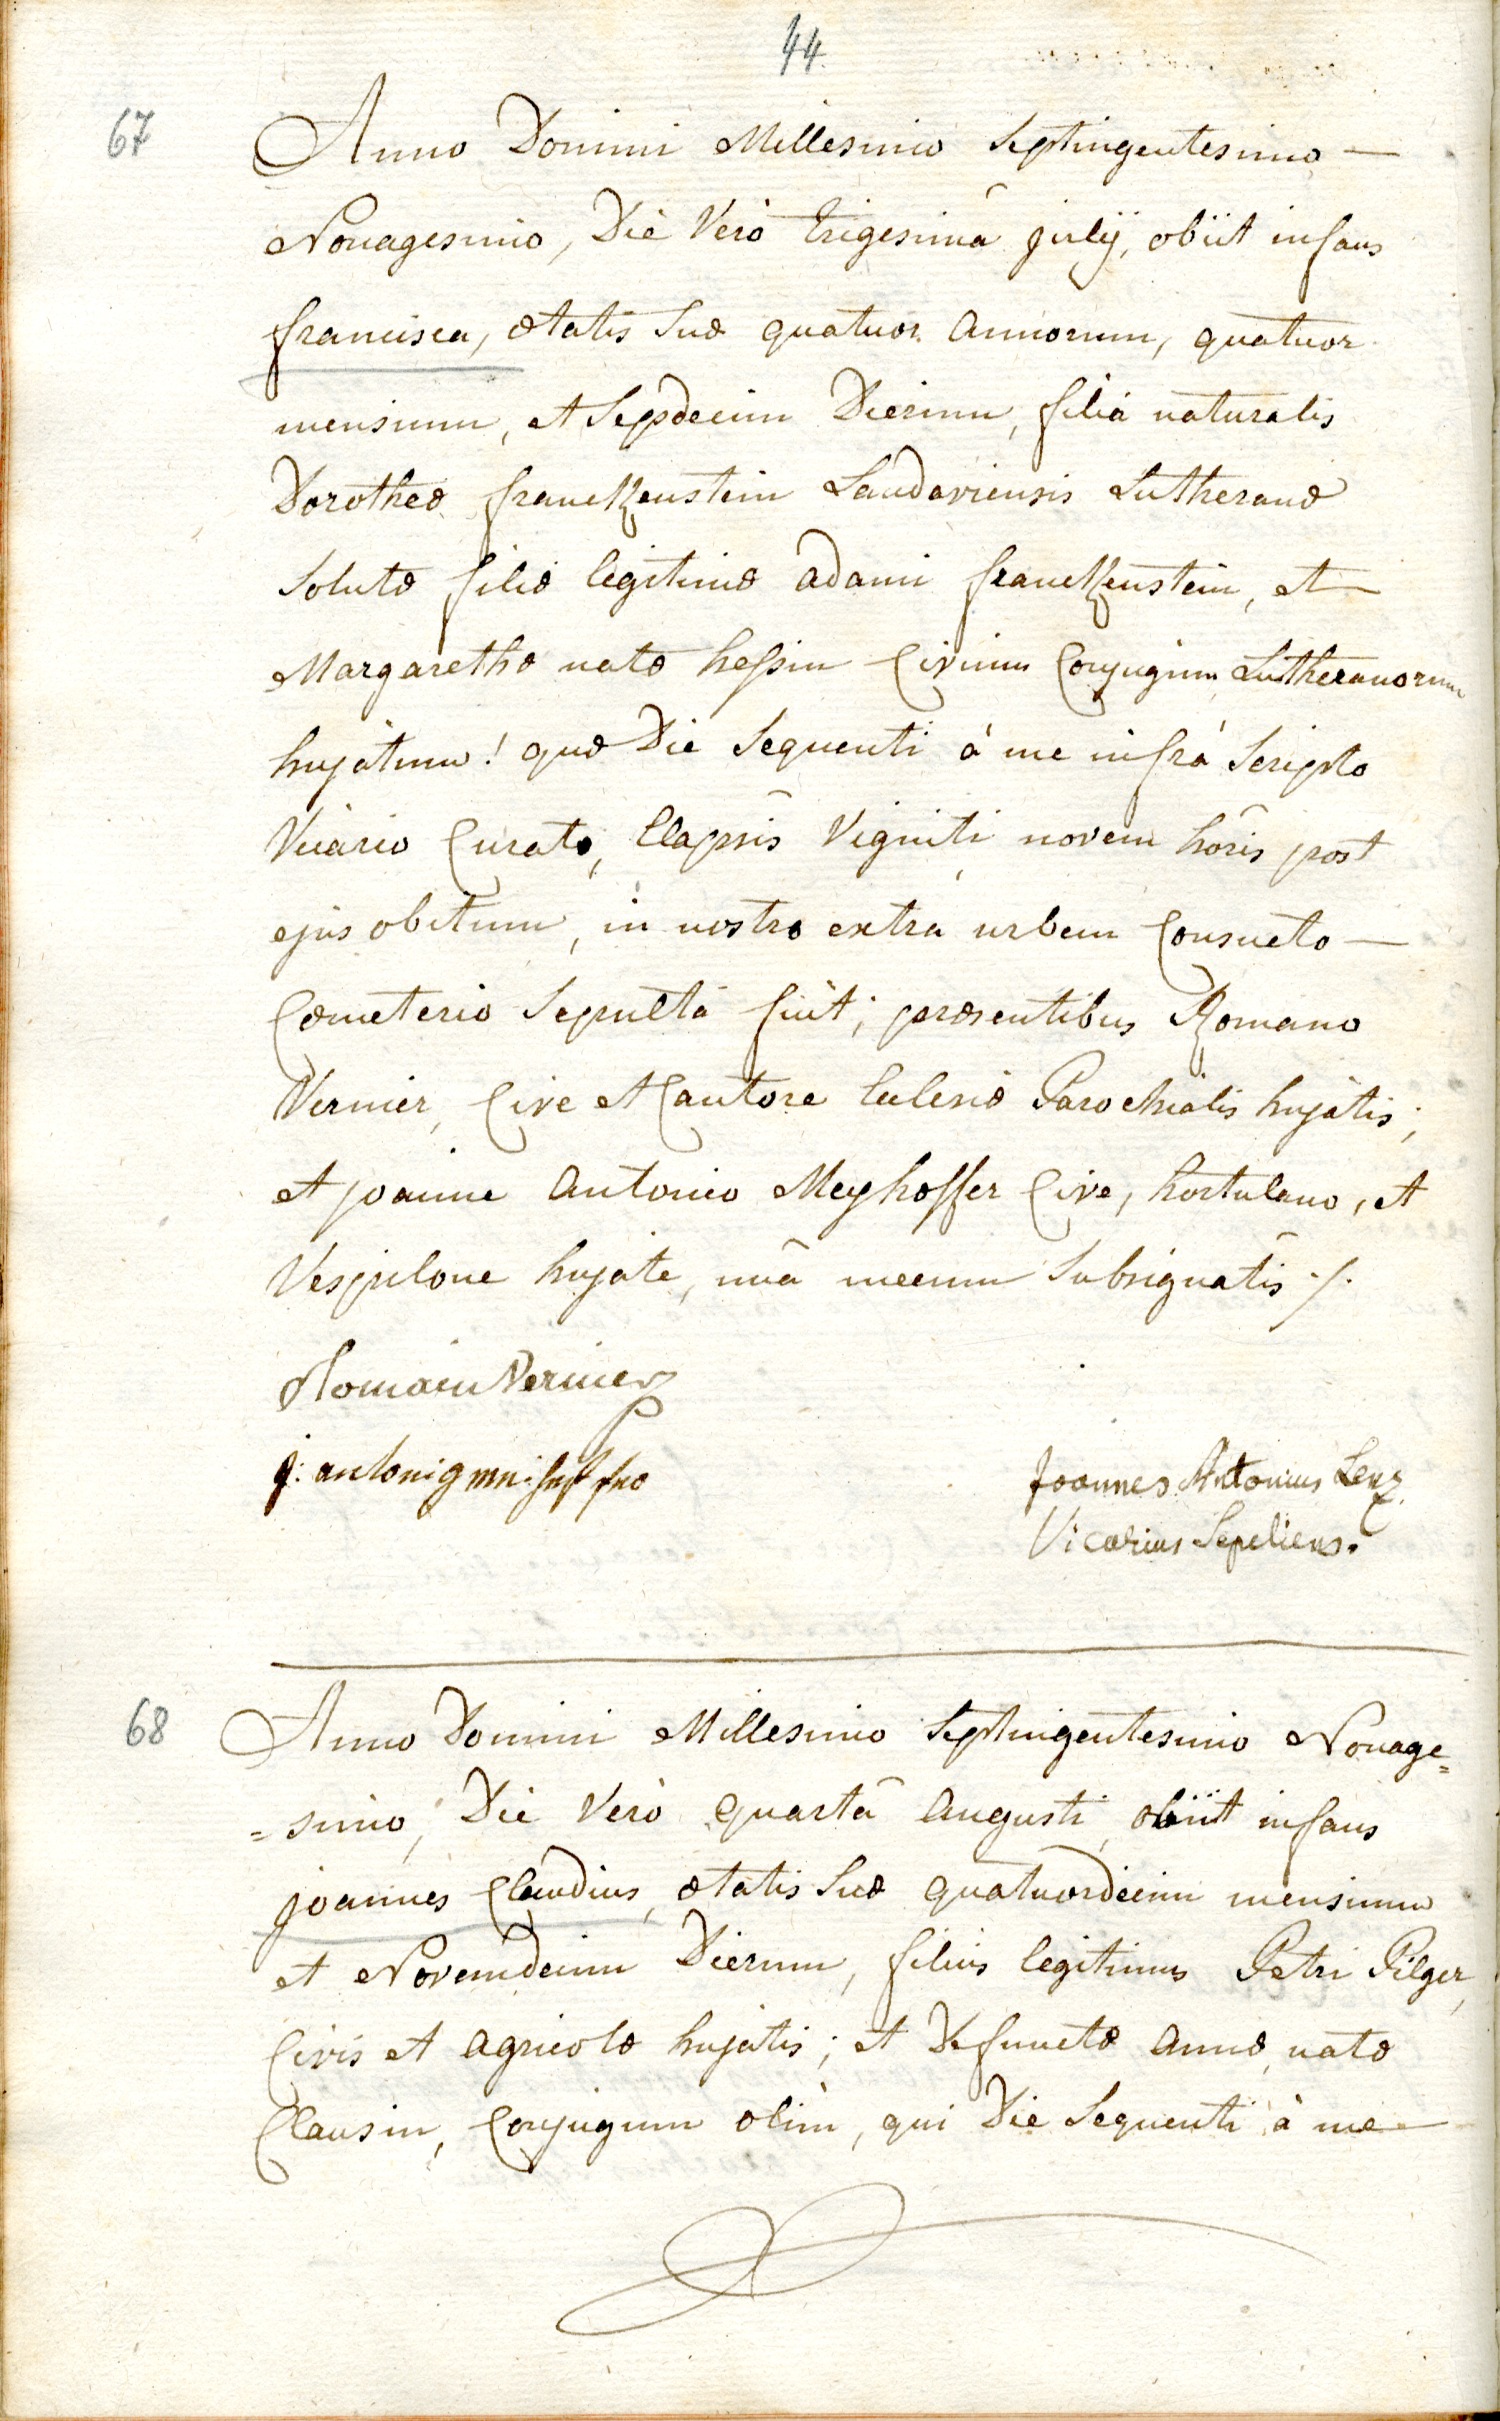 44
67
Anno Domini Millesimo Septingentesimo —
Nonagesimo, Die Verò trigesimâ julÿ, obiit infans
francisca, ætatis Suæ quatuor annorum, quatuor
mensium, et Sepdecim Dierum, filia naturalis
Dorotheæ franckenstein Landaviensis Lutheranæ
Solutæ filiæ legitimæ adami franckenstein, et —
Margarethæ natæ hessin Civium Conjugum Lutheranorum
hujatum! quæ Die Sequenti à me infrà Scripto
Vicario Curato, Elapsis Viginti novem horis post
ejus obitum, in nostro extra urbem Consueto —
Cœmeterio Sepulta fuit; præsentibus Romano
Vernier, Cive et Cantore Eclesiæ Parochialis hujatis;
et joanne antonio Meyhoffer Cive, hortulano, et
Vespilone hujate, unâ mecum Subsignatis ./.
Romain Vernier
j: antoni
Joannes Antonius Lenz
Vicarius Sepeliens.
68
Anno Domini Millesimo Septingentesimo Nonage=
=simo, Die Verò quartâ augusti, obiit infans
joannes Claudius, ætatis Suæ quatuordecim mensium
et Novemdecim Dierum, filius legitimus Petri Pilger,
Civis et agricolæ hujatis; et Defunctæ annæ natæ
Clausin, Conjugum olim, qui Die Sequenti à me —